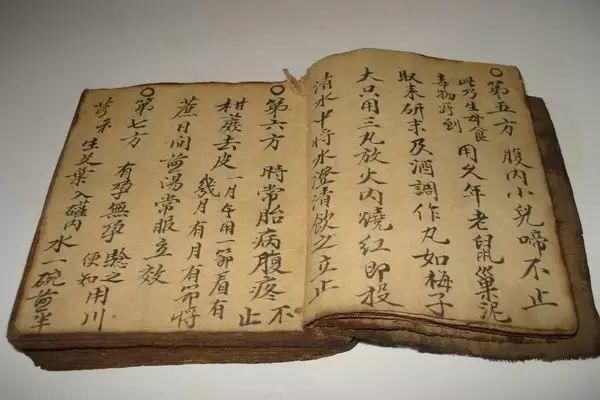 第五方 腹內小兒啼不止
此乃生母食
毒物所到
用久年老鼠巢泥
取末研末及酒調作丸如梅子
大只用三丸放火內燒紅即投
清水中將水澄清飲之立止
第六方 時常胎病腹疼不止
去皮 一月
幾月有月有節將
蔗日间煎湯常服立效
第七方 有孕無孕 驗之
便知
用川
芎 生艾葉入罐內水一碗煎半